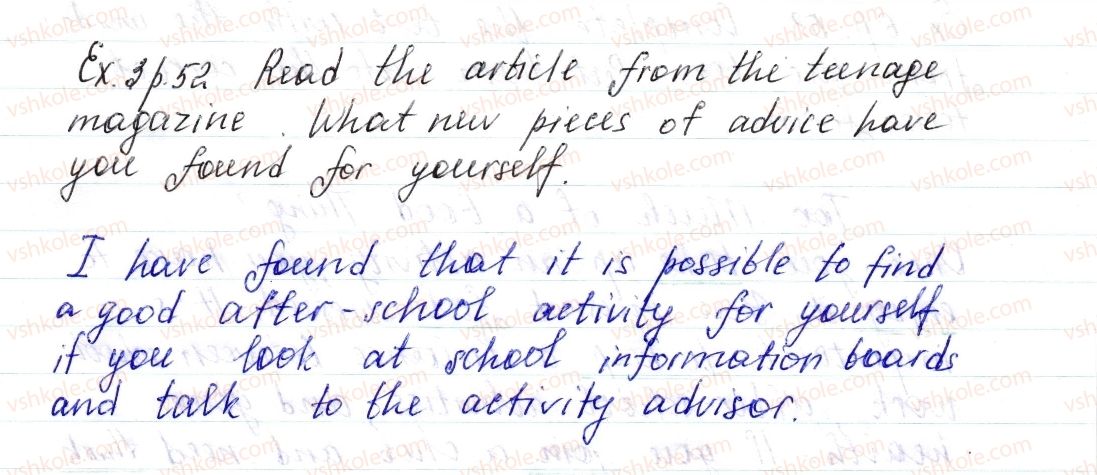 Ex. 3 p. 52 Read the article from the teenage
magazine. What new pieces of advice have
you found for yourself.
I have found that it is possible to find
a good after-school activity for yourself
if you look at school information boards
and talk to the activity advisor.